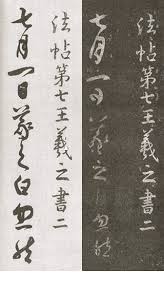 法帖第七王羲之書二
七月一日羲之白忽然
法帖第七王羲之書二
七月一日羲之白忽然